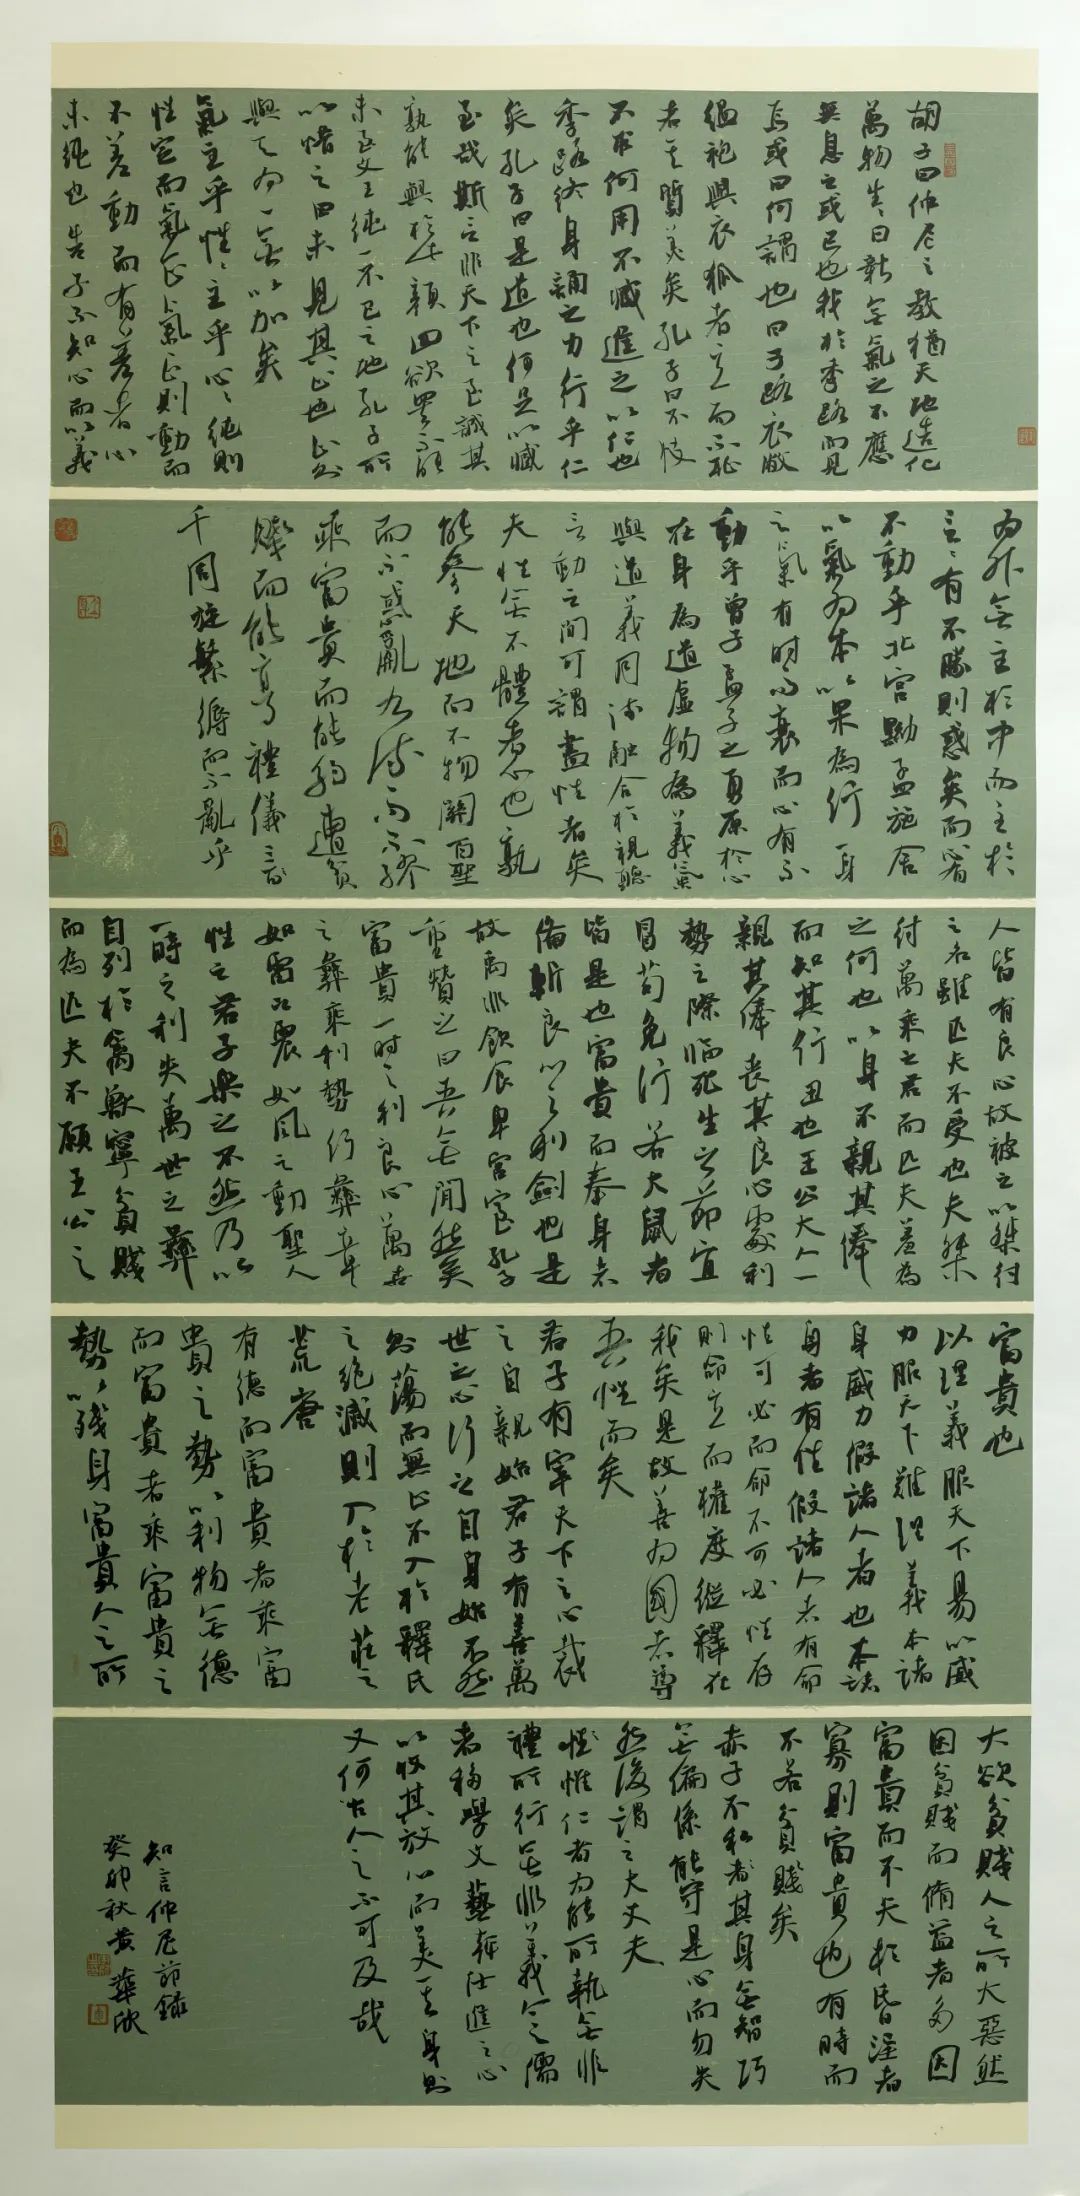 胡子曰仲尼之教猶天地造化
萬物生〻日新無氣之不應
無息之或已也我於季路而見
焉或曰何謂也曰子路衣敝
縕袍與衣狐者立而不恥
者其質美矣孔子曰不忮
不求何用不臧進之以仁也
季路終身誦之力行乎仁
矣孔子曰是道也何足以臧
至哉斯言非天下之至誠其
孰能與於此顏回欲罷不能
未至文王純一不已之地孔子所
以惜之曰未見其止也止則
與天為一無以加矣
氣主乎性〻主乎心〻純則
性定而氣正氣正則動而
不差動而有差者心
未純也告子不知心而以義
為外無主於中而主於
言〻有不勝則惑矣而心有
不動乎北宮黝孟施舍
以氣為本以果為行一身
之氣有時而衰而心有不
動乎曾子孟子之勇原於心
在身為道處物為義氣
與道義同流融合於視聽
言動之間可謂盡性者矣
夫性無不體者心也孰
能參天地而不物關百聖
而不惑亂九流而不謬
乘富貴而能約遭貧
賤而能亨禮儀三百
千周旋繁縟而不亂乎
人皆有良心故被之以桀紂
之名雖匹夫不受也夫桀
紂萬乘之君而匹夫羞為
之何也以身不親其俸
而知其行丑也王公大人一
親其俸喪其良心處利
勢之際臨死生之節宜
冒苟免行若大鼠者
皆是也富貴而奉身者
備斬良心之利劍也是
故禹菲飲食卑宮室孔子
重贊之曰吾無閒然矣
富貴一時之利良心萬世
之彝乘利勢行彝章
如雷之震如風之動聖人
性之君子樂之不然乃以
一時之利失萬世之彝
自列於禽獸寧貧賤
而為匹夫不願王公之
富貴也
以理義服天下易以威
力服天下難理義本諸
身威力假諸人者也本諸
身者有性假諸人者有命
性可必而命不可必性存
則命立而權度縱釋在
我矣是故善為國者尊
吾性而矣
君子有宰天下之心裁
之自親始君子有善萬
世之心行之自身始不然
則蕩而無止不入於釋氏
之絕滅則入於老莊之
荒唐
有德而富貴者乘富
貴之勢以利物無德
而富貴者乘富貴之
勢以殘身富貴人之所
大欲貧賤人之所大惡然
因貧賤而脩益者多因
富貴而不失於昏淫者
寡則富貴也有時而
不若貧賤矣
赤子不私其身無智巧
無偏係能守是心而勿失
然後謂之大丈夫
惟仁者為能所執無非
禮所行無非義今之儒
者移學文藝幹仕進之心
以收其放心而美其身則
又何古人之不可及哉
知言仲尼節錄
癸卯秋黃華欣